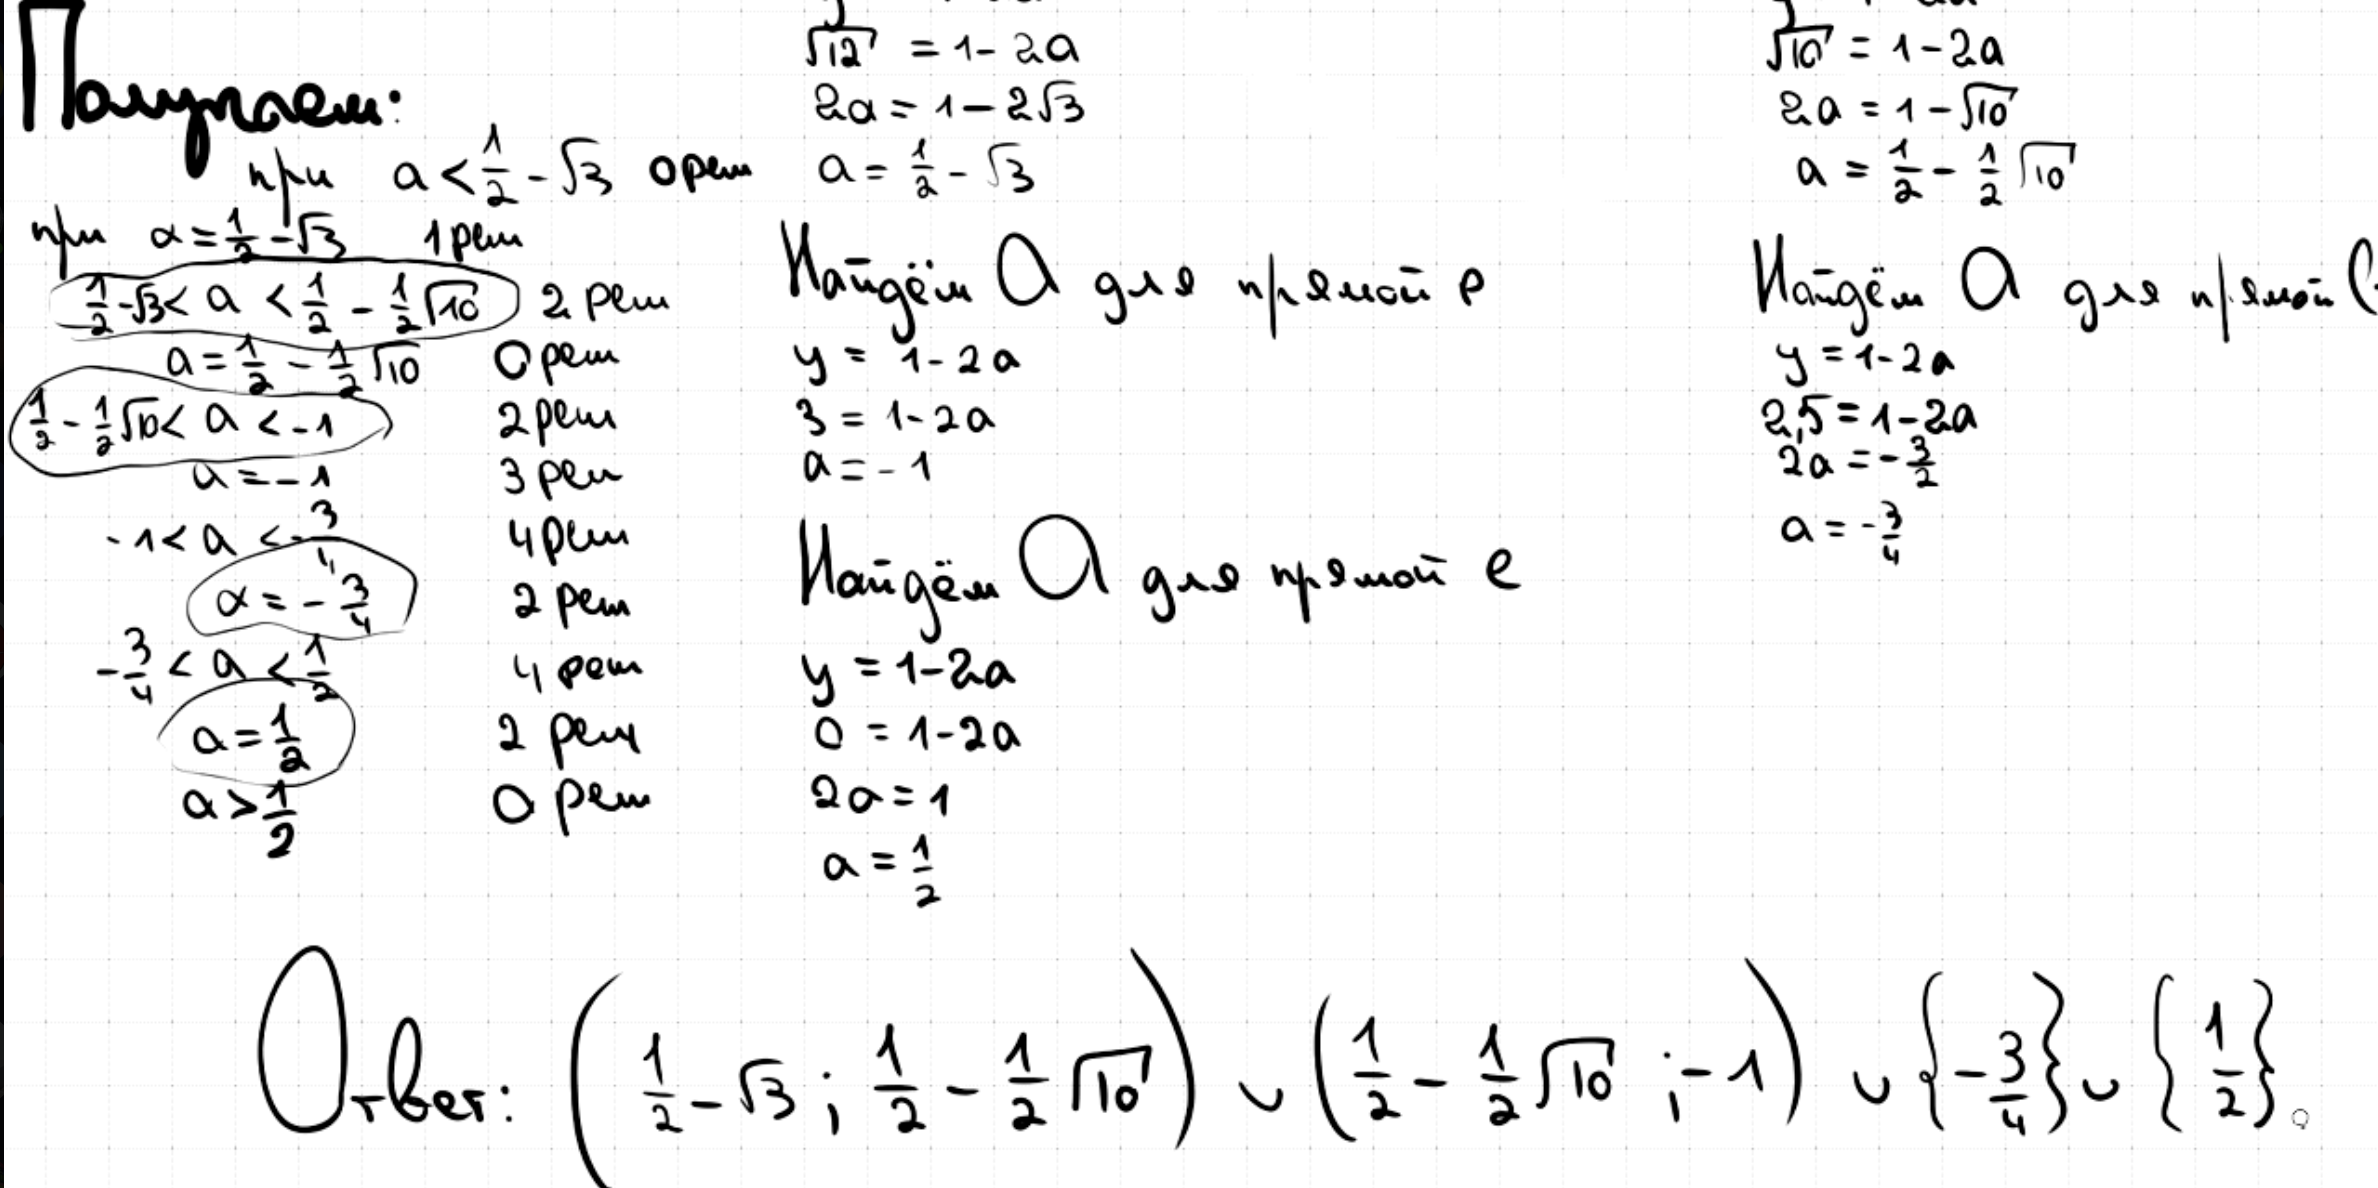 Получаем:
при a < 1/2 - √3 0 реш
при a = 1/2 - √3 1 реш
1/2 - √3 < a < 1/2 - 1/2√10 2 реш
a = 1/2 - 1/2√10 0 реш
1/2 - 1/2√10 < a < -1 2 реш
a = -1 3 реш
-1 < a < -3/4 4 реш
a = -3/4 2 реш
-3/4 < a < 1/2 4 реш
a = 1/2 2 реш
a > 1/2 0 реш
√12 = 1 - 2a
2a = 1 - 2√3
a = 1/2 - √3
Найдём a для прямой p
y = 1 - 2a
3 = 1 - 2a
a = -1
Найдём a для прямой e
y = 1 - 2a
0 = 1 - 2a
2a = 1
a = 1/2
√10 = 1 - 2a
2a = 1 - √10
a = 1/2 - 1/2√10
Найдём a для прямой
y = 1 - 2a
2,5 = 1 - 2a
2a = -3/2
a = -3/4
Ответ: (1/2 - √3; 1/2 - 1/2√10) ∪ (1/2 - 1/2√10; -1) ∪ {-3/4} ∪ {1/2}.